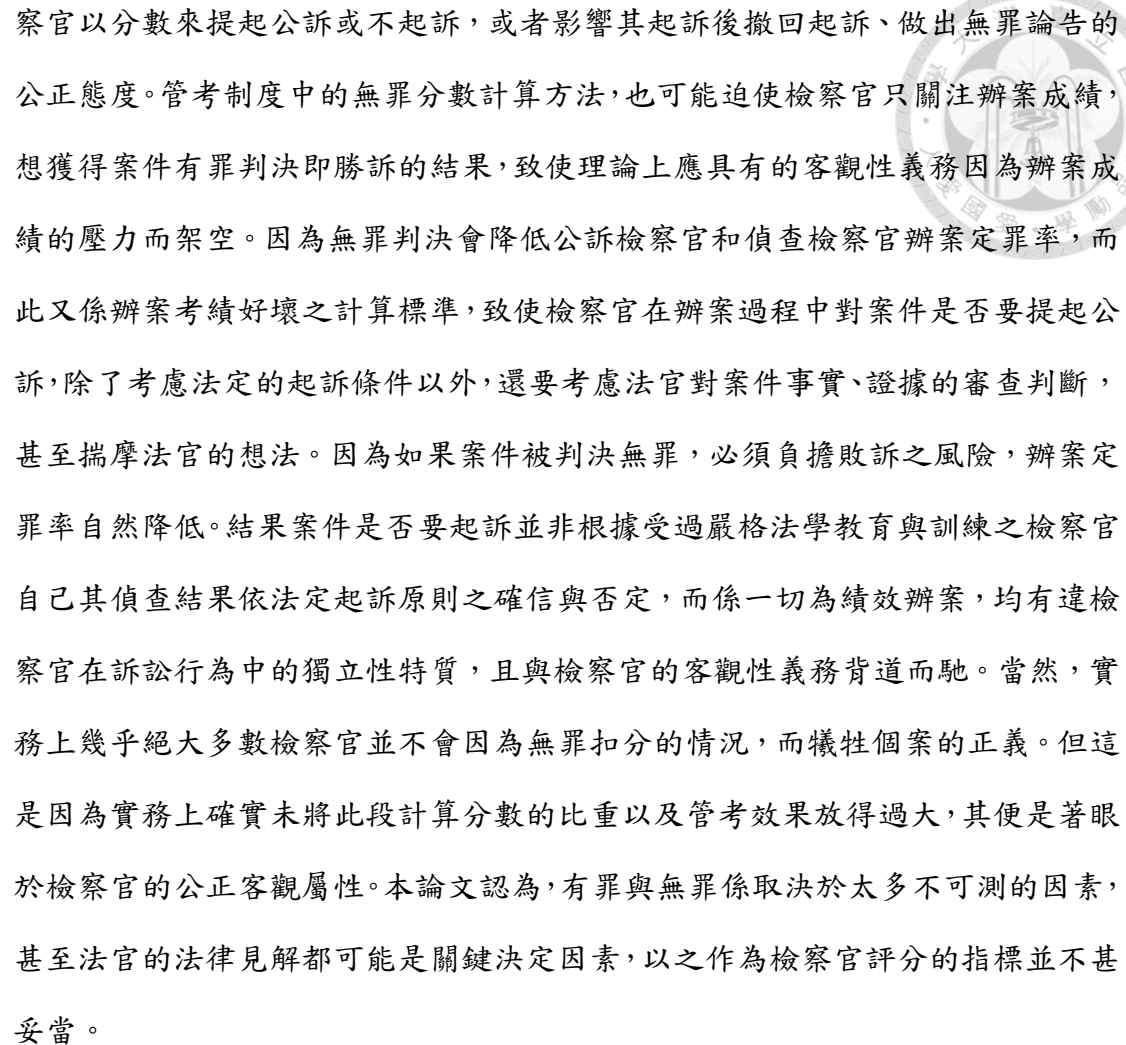 察官以分數來提起公訴或不起訴，或者影響其起訴後撤回起訴、做出無罪論告的
公正態度。管考制度中的無罪分數計算方法，也可能迫使檢察官只關注辦案成績，
想獲得案件有罪判決即勝訴的結果，致使理論上應具有的客觀性義務因為辦案成
績的壓力而架空。因為無罪判決會降低公訴檢察官和偵查檢察官辦案定罪率，而
此又係辦案考績好壞之計算標準，致使檢察官在辦案過程中對案件是否要提起公
訴，除了考慮法定的起訴條件以外，還要考慮法官對案件事實、證據的審查判斷，
甚至揣摩法官的想法。因為如果案件被判決無罪，必須負擔敗訴之風險，辦案定
罪率自然降低。結果案件是否要起訴並非根據受過嚴格法學教育與訓練之檢察官
自己其偵查結果依法定起訴原則之確信與否定，而係一切為績效辦案，均有違檢
察官在訴訟行為中的獨立性特質，且與檢察官的客觀性義務背道而馳。當然，實
務上幾乎絕大多數檢察官並不會因為無罪扣分的情況，而犧牲個案的正義。但這
是因為實務上確實未將此段計算分數的比重以及管考效果放得過大，其便是著眼
於檢察官的公正客觀屬性。本論文認為，有罪與無罪係取決於太多不可測的因素，
甚至法官的法律見解都可能是關鍵決定因素，以之作為檢察官評分的指標並不甚
妥當。